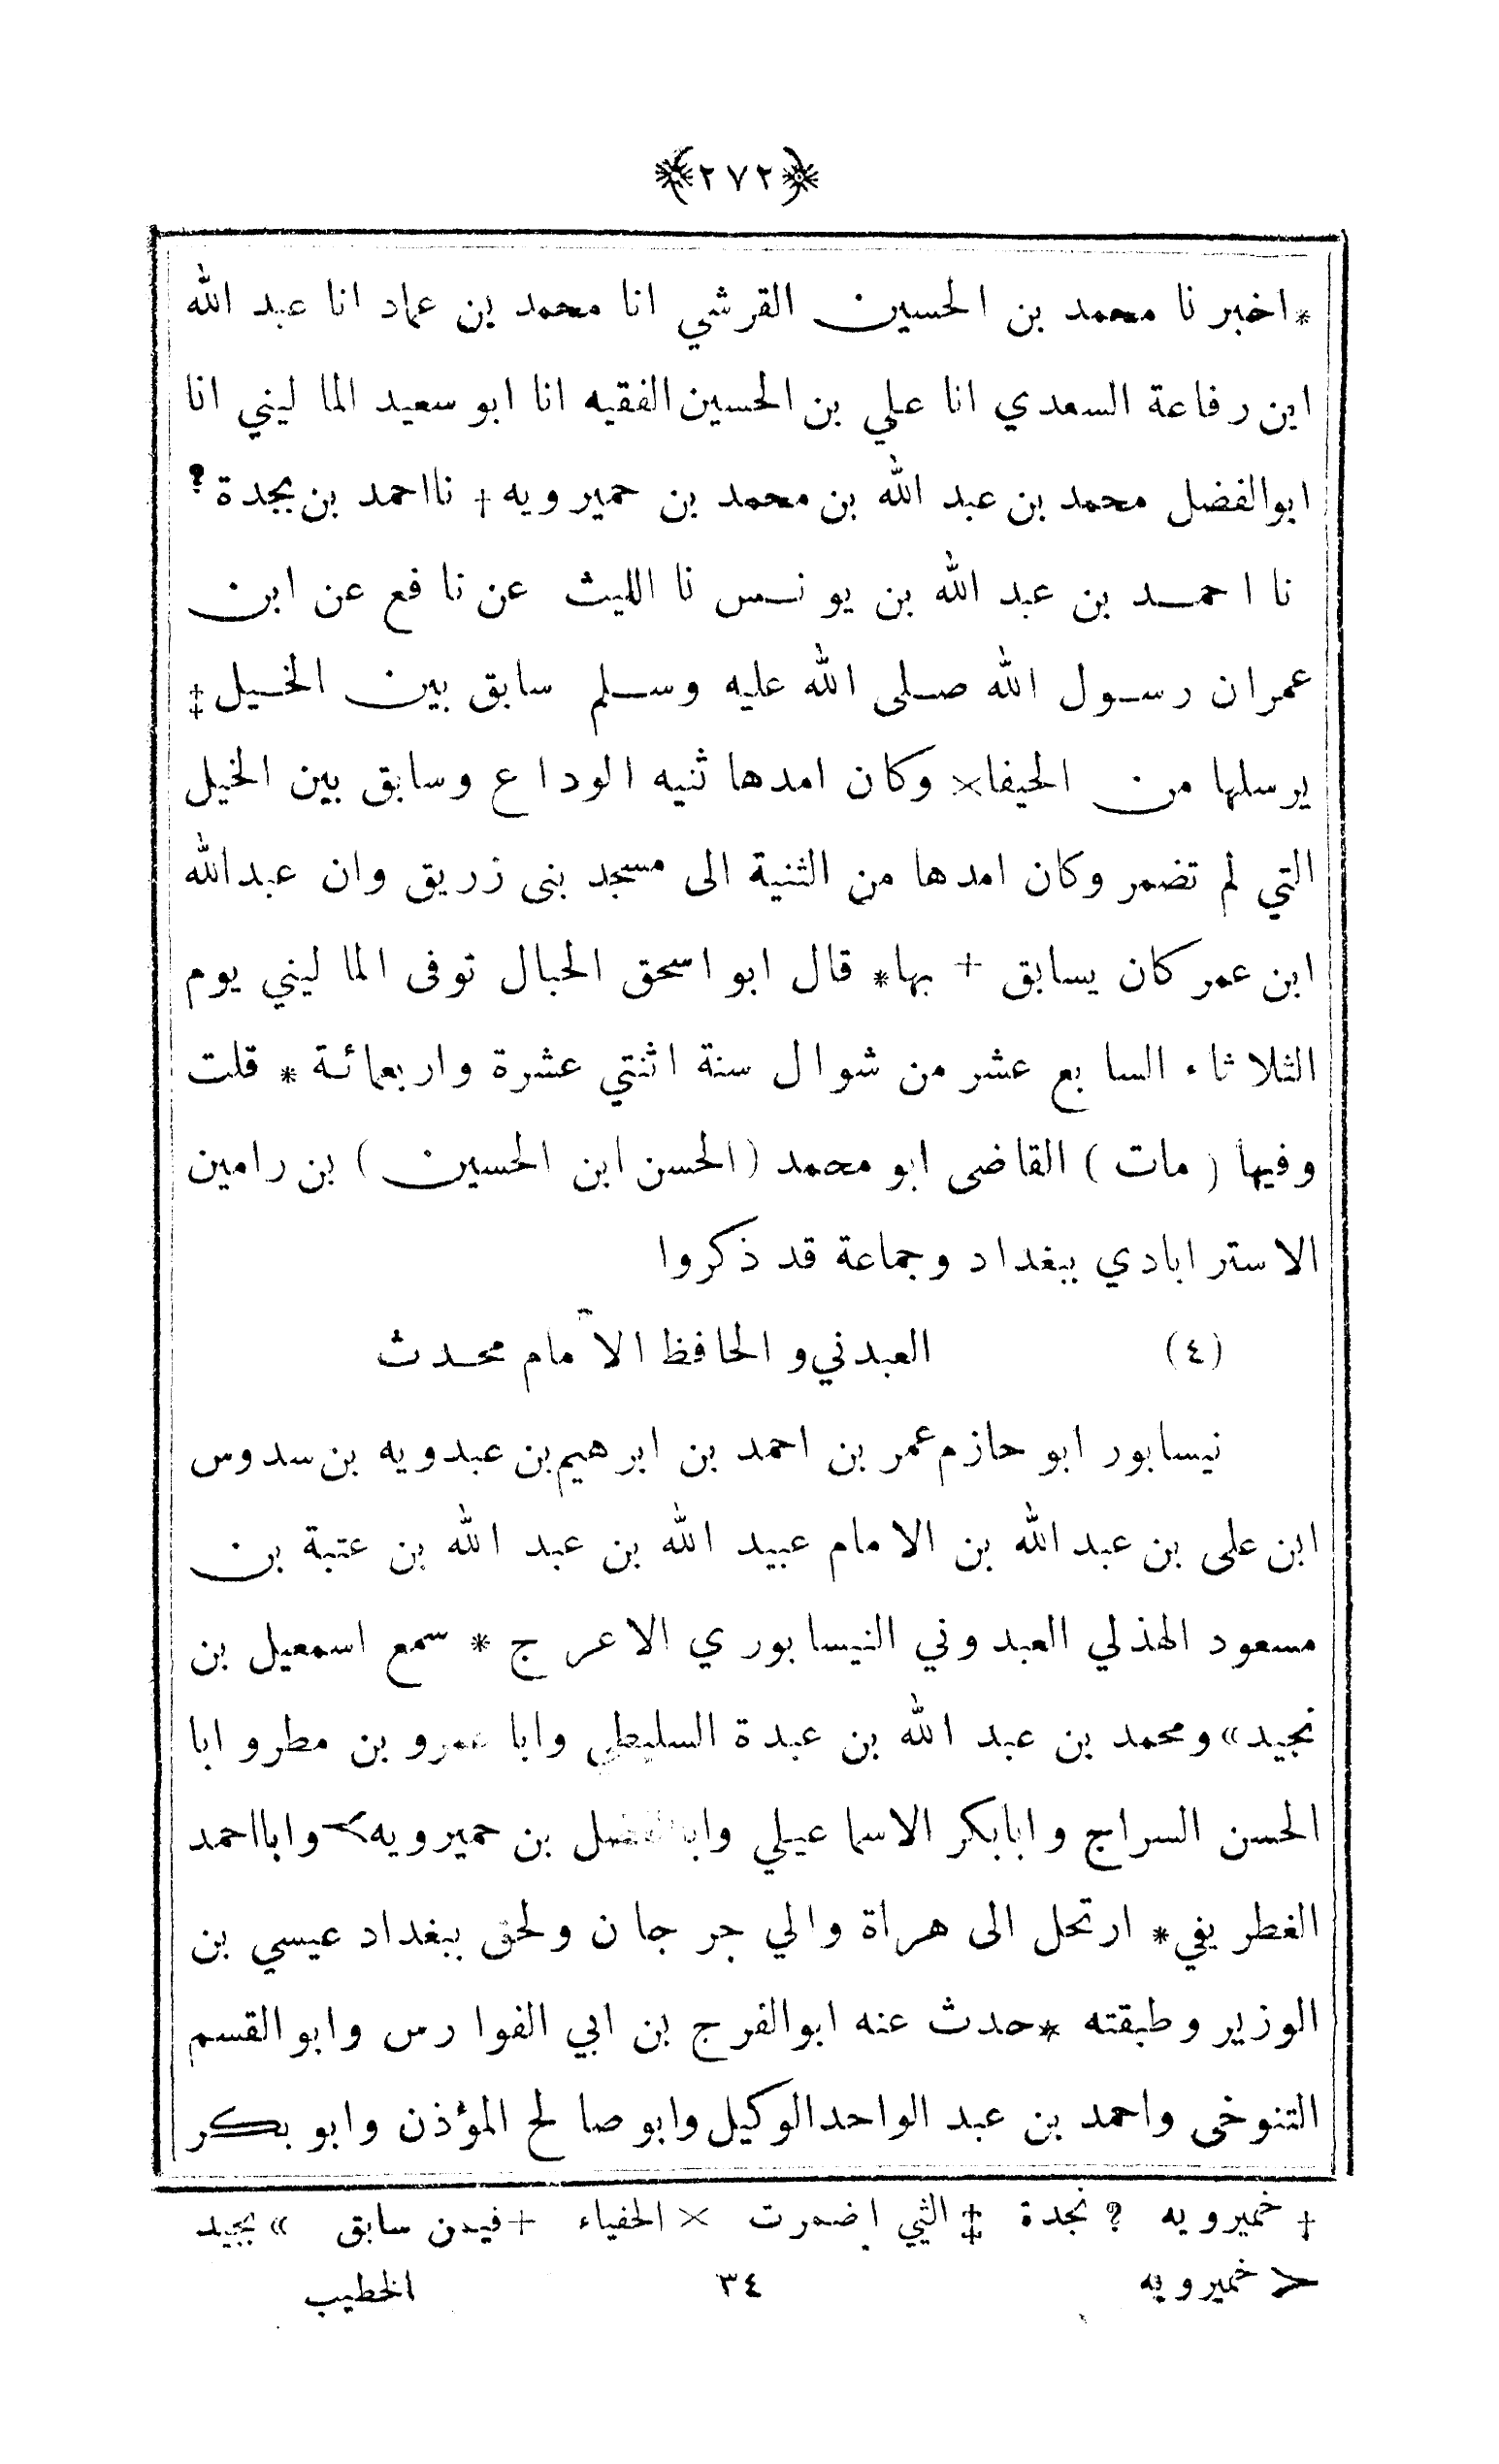 ﴿٢٧٢﴾
*اخبرنا محمد بن الحسين القرشي انا محمد بن عماد انا عبد الله
ابن رفاعة السعدي انا علي بن الحسين الفقيه انا ابو سعيد الماليني انا
ابوالفضل محمد بن عبد الله بن محمد بن حميرويه † نااحمد بن بجدة ?
نا احمد بن عبد الله بن يونس نا الليث عن نافع عن ابن
عمران رسول الله صلى الله عليه وسلم سابق بين الخيل ‡
يرسلها من الحيفا× وكان امدها ثنيه الوداع وسابق بين الخيل
التي لم تضمر وكان امدها من الثنية الى مسجد بنى زريق وان عبدالله
ابن عمر كان يسابق + بها* قال ابو اسحق الحبال توفى الماليني يوم
الثلاثاء السابع عشر من شوال سنة اثنتي عشرة واربعمائة * قلت
وفيها (مات) القاضى ابو محمد (الحسن ابن الحسين) بن رامين
الاسترابادي ببغداد وجماعة قد ذكروا
(٤) العبدني و الحافظ الامام محدث
نيسابور ابو حازم عمر بن احمد بن ابرهيم بن عبدويه بن سدوس
ابن على بن عبد الله بن الامام عبيد الله بن عبد الله بن عتبة بن
مسعود الهذلي العبدوني النيسابوري الاعرج * سمع اسمعيل بن
نجيد» ومحمد بن عبد الله بن عبدة السليطي وابا عمرو بن مطر و ابا
الحسن السراج وابابكر الاسماعيلي وابا الفضل بن حميرويه> وابااحمد
الغطريفي* ارتحل الى هراة والي جرجان ولحق ببغداد عيسي بن
الوزير وطبقته *حدث عنه ابوالفرج بن ابي الفوارس وابو القسم
التنوخى واحمد بن عبد الواحد الوكيل وابو صالح المؤذن وابو بكر
† خميرويه ? نجدة ‡ التي اضمرت × الحفياء + فيمن سابق » بجيد
> خميرويه ٣٤ الخطيب